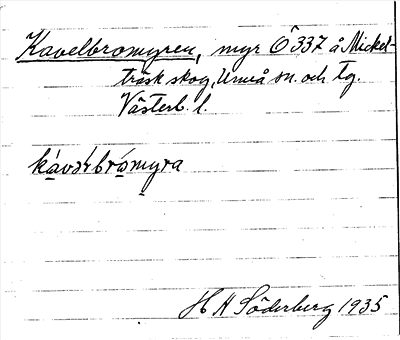 Kavelbromyren, myr Ö 337 å Mickel-
träsk skog, Umeå sn. och tg.
Västerb. l.
kávərbrómyra
H A Söderberg 1935